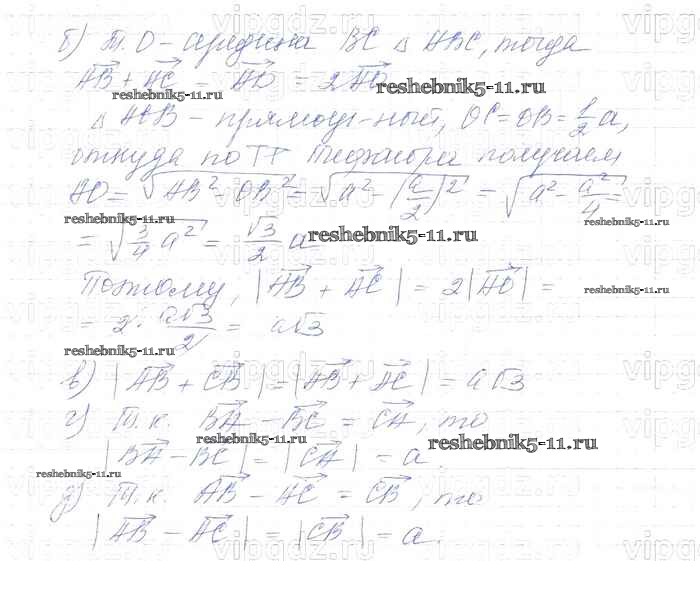 б) т. О - середина BC △ ABC, тогда
AB + AC = AD = 2AO
reshebnik5-11.ru
reshebnik5-11.ru
△ AOB - прямоуг-ный, OC = OB = 1/2 a,
откуда по ТГ Пифагора получаем
AO = √(AB² - OB²) = √(a² - (a/2)²) = √(a² - a²/4) =
reshebnik5-11.ru
reshebnik5-11.ru
= √(3/4 a²) = √3/2 a
reshebnik5-11.ru
Поэтому, |AB + AC| = 2|AO| =
reshebnik5-11.ru
= 2 · a√3/2 = a√3
reshebnik5-11.ru
в) |AB + CB| = |AB + AC| = a√3
г) Т.к. BA - BC = CA, то
reshebnik5-11.ru
reshebnik5-11.ru
|BA - BC| = |CA| = a.
reshebnik5-11.ru
д) Т.к. AB - AC = CB, то
|AB - AC| = |CB| = a.